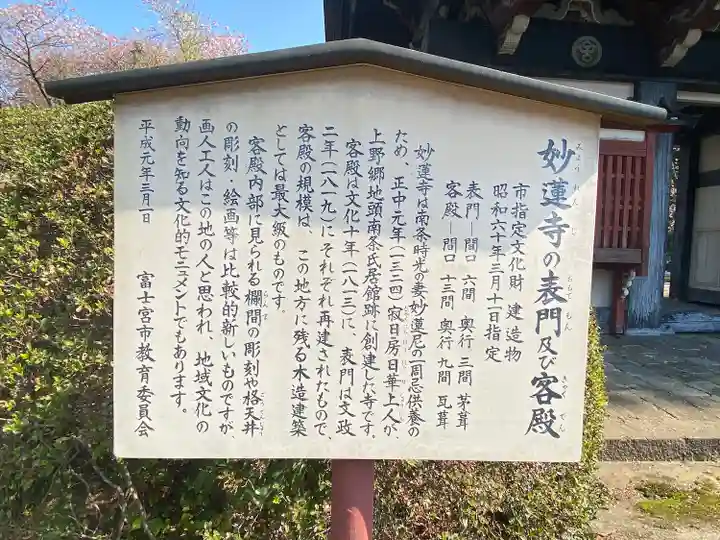 妙蓮寺の表門及び客殿
市指定文化財　建造物
昭和六十年三月十一日指定
表門―間口　六間　奥行　三間　茅葺
客殿―間口　十三間　奥行　九間　瓦葺
妙蓮寺は南条時光の妻妙蓮尼の一周忌供養の
ため、正中元年（一三二四）寂日房日華上人が、
上野郷地頭南条氏居館跡に創建した寺です。
客殿は文化十年（一八一三）に、表門は文政
二年（一八一九）にそれぞれ再建されたもので、
客殿の規模は、この地方に残る木造建築
としては最大級のものです。
客殿内部に見られる欄間の彫刻や格天井
の彫刻、絵画等は比較的新しいものですが、
画人工人はこの地の人と思われ、地域文化の
動向を知る文化的モニュメントでもあります。
平成元年三月一日　富士宮市教育委員会